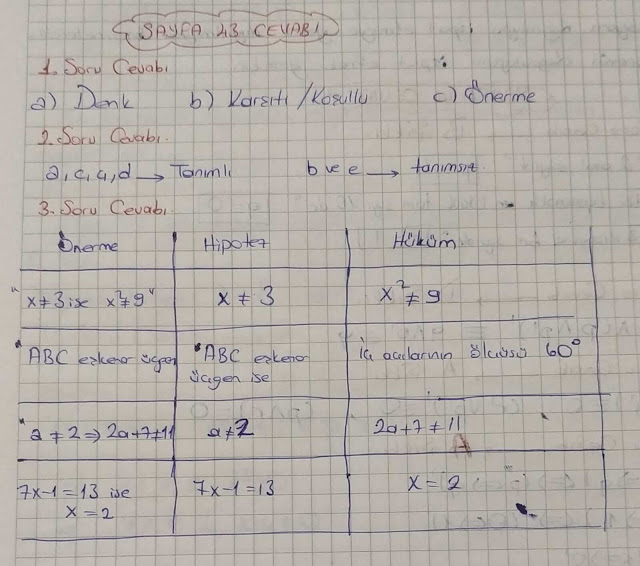 SAYFA 43 CEVABI
1. Soru Cevabı
a) Denk b) Karşıtı / Koşullu c) Önerme
2. Soru Cevabı.
a, c, ç, d → Tanımlı b ve e → tanımsız
3. Soru Cevabı.
Önerme Hipotez Hüküm
"x≠3 ise x²≠9" x ≠ 3 x² ≠ 9
"ABC eşkenar üçgen "ABC eşkenar İç açılarının ölçüsü 60°
üçgen ise
"a ≠ 2 ⇒ 2a+7≠11 a≠2 2a+7≠11
7x-1=13 ise 7x-1=13 x = 2
x=2